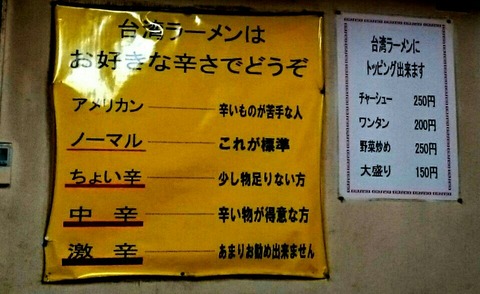 台湾ラーメンは
お好きな辛さでどうぞ
アメリカン 辛いものが苦手な人
ノーマル これが標準
ちょい辛 少し物足りない方
中辛 辛い物が得意な方
激辛 あまりお勧め出来ません
台湾ラーメンに
トッピング出来ます
チャーシュー 250円
ワンタン 200円
野菜炒め 250円
大盛り 150円